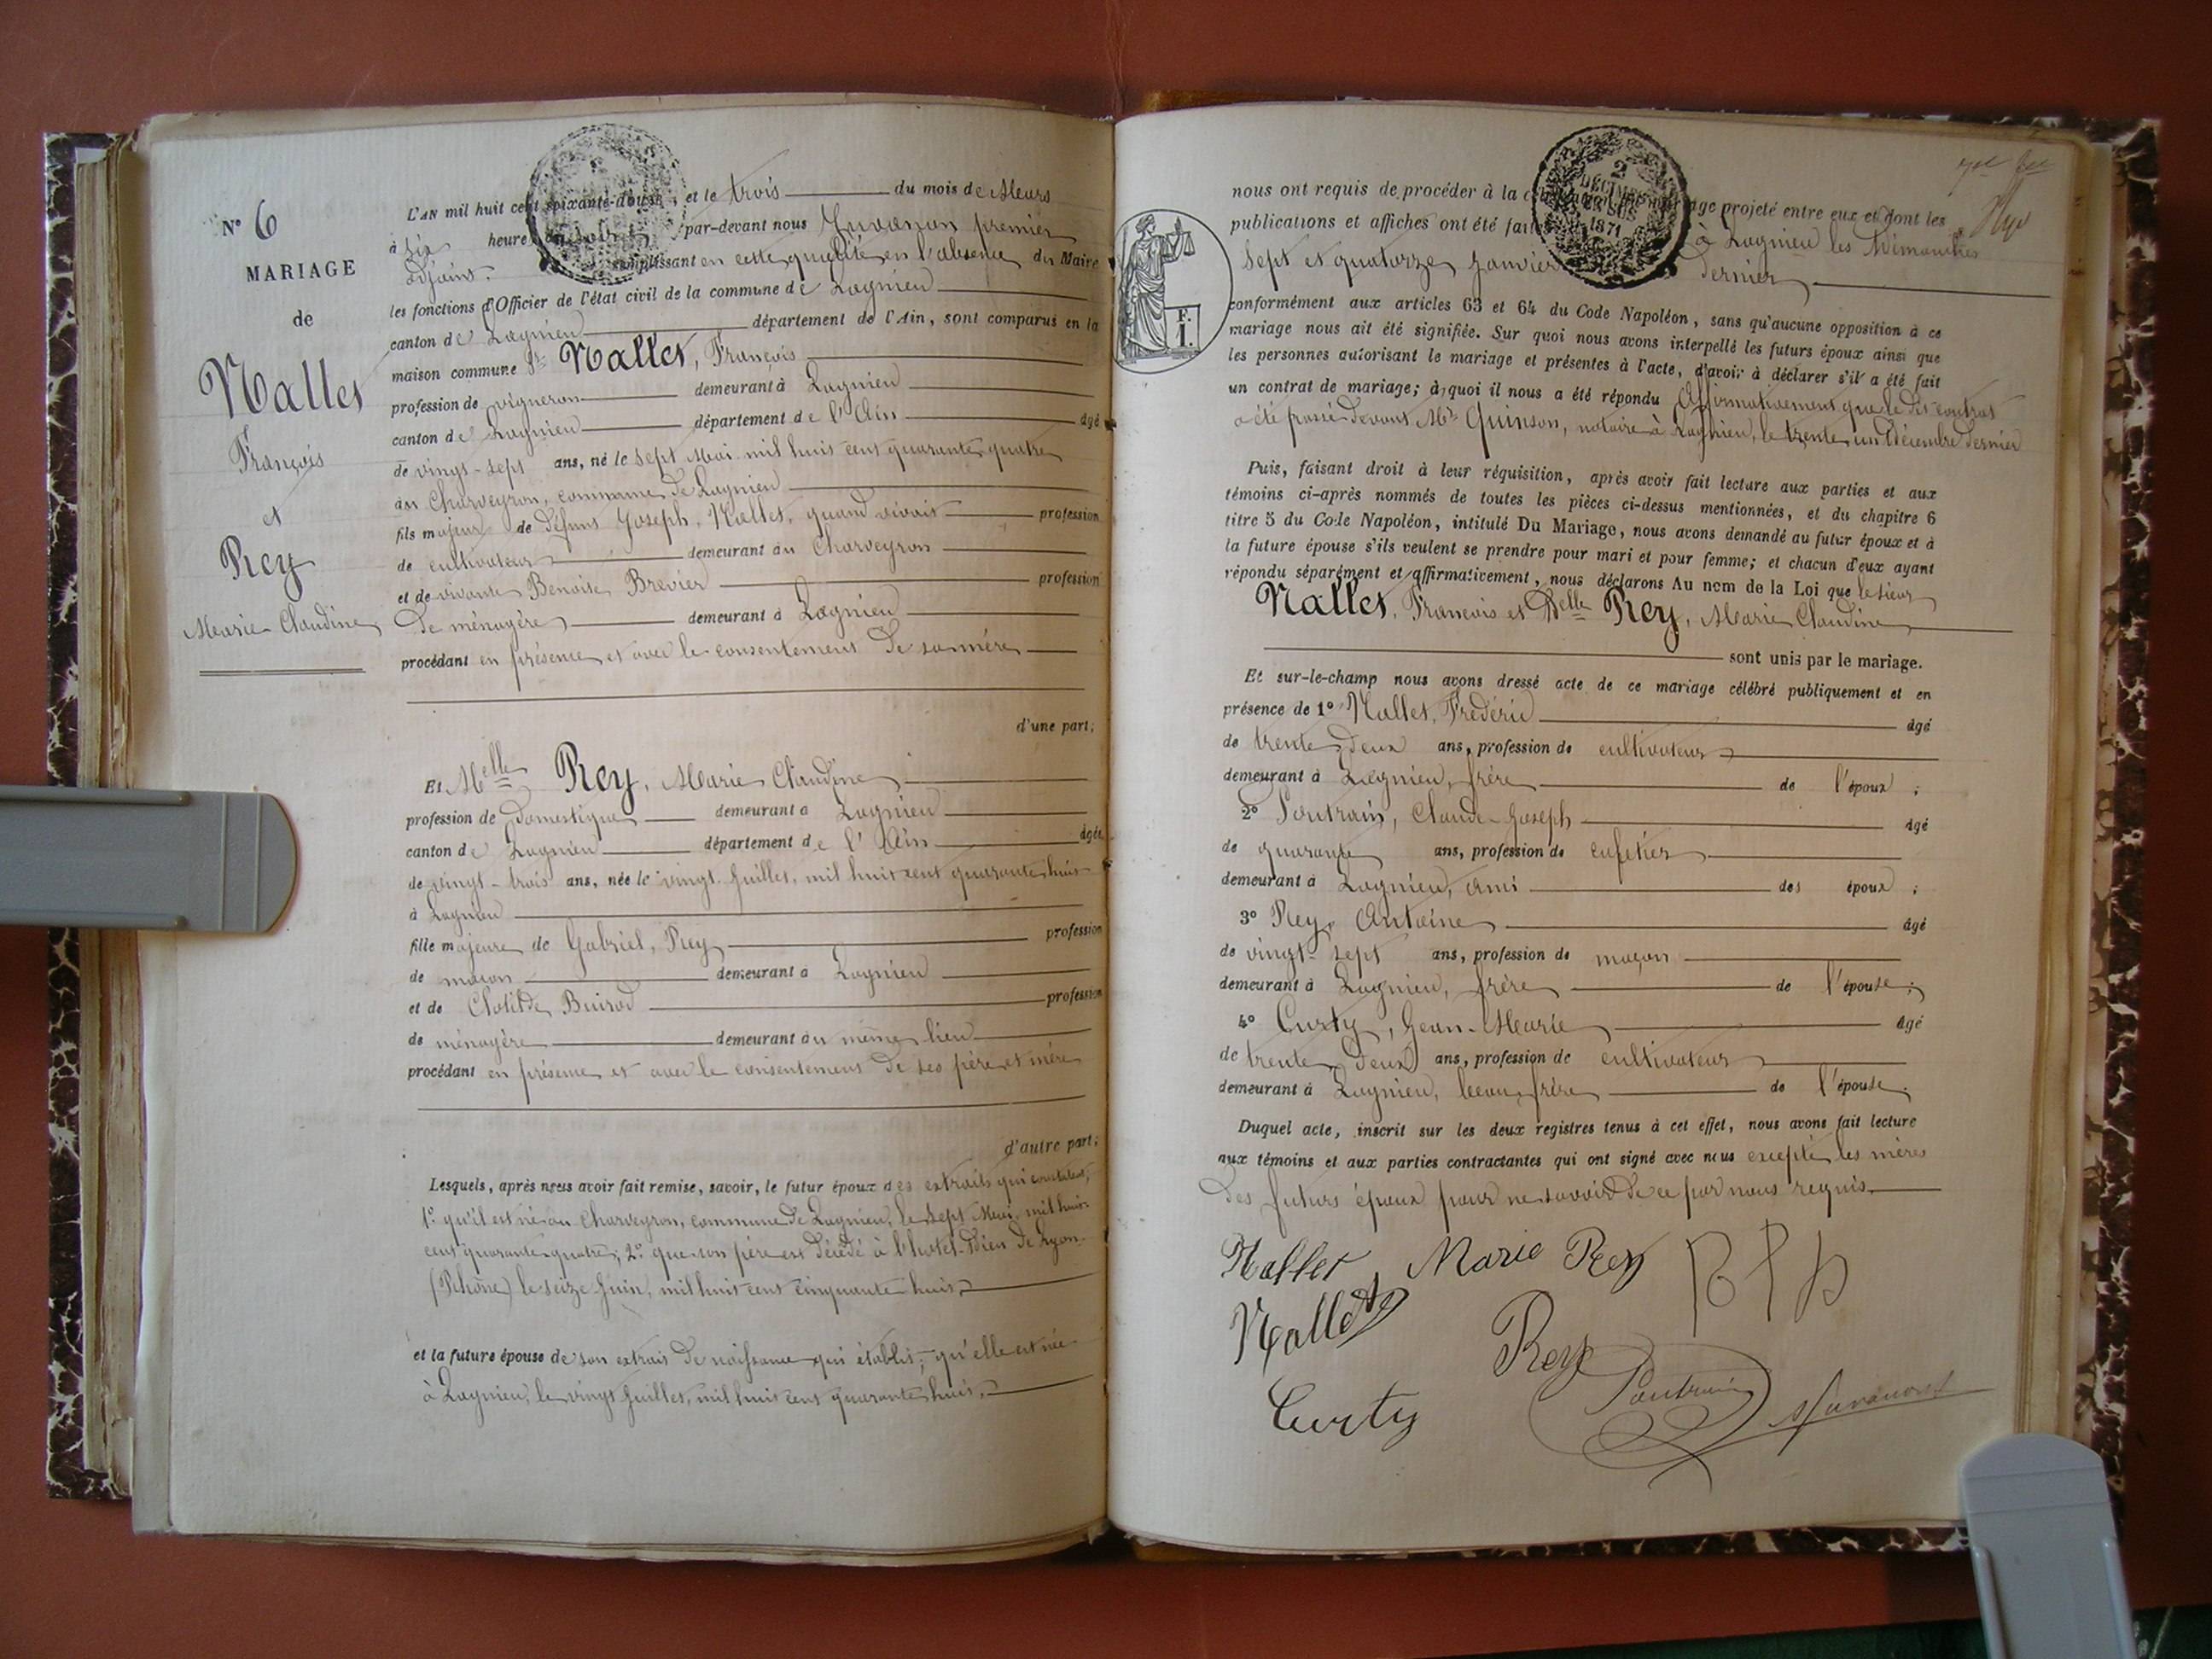 N° 6
MARIAGE
de
Nallet
François
et
Rey
Marie Claudine
L'AN mil huit cent soixante-douze, et le trois du mois de Mars
à six heures du soir par-devant nous premier
adjoint remplissant en cette qualité en l'absence du Maire
les fonctions d'Officier de l'état civil de la commune de Lagnieu
canton de Lagnieu département de l'Ain, sont comparus en la
maison commune Sr Nallet, François
profession de vigneron demeurant à Lagnieu
canton de Lagnieu département de l'Ain âgé
de vingt-sept ans, né le sept Mai mil huit cent quarante quatre
au Charveyron, commune de Lagnieu
fils majeur de défunt Joseph, Nallet, quand vivait profession
de cultivateur demeurant au Charveyron
et de vivante Benoite Brevier profession
de ménagère demeurant à Lagnieu
procédant en présence et avec le consentement de sa mère
d'une part;
Et Melle Rey, Marie Claudine
profession de domestique demeurant à Lagnieu
canton de Lagnieu département de l'Ain âgée
de vingt-trois ans, née le vingt Juillet, mil huit cent quarante huit
à Lagnieu
fille majeure de Gabriel, Rey profession
de maçon demeurant à Lagnieu
et de Clotilde Buirod profession
de ménagère demeurant au même lieu
procédant en présence et avec le consentement de ses père et mère
d'autre part;
Lesquels, après nous avoir fait remise, savoir, le futur époux des extraits qui constatent,
1° qu'il est né au Charveyron, commune de Lagnieu, le sept Mai, mil huit
cent quarante quatre; 2° que son père est décédé à l'hotel-Dieu de Lyon
(Rhône) le seize Juin, mil huit cent cinquante huit
et la future épouse de son extrait de naissance qui établit, qu'elle est née
à Lagnieu, le vingt Juillet, mil huit cent quarante huit.
nous ont requis de procéder à la célébration du mariage projeté entre eux et dont les
publications et affiches ont été faites à Lagnieu les Dimanches
sept et quatorze Janvier dernier
2
DÉCIMES
EN SUS
1871
F.
1.
conformément aux articles 63 et 64 du Code Napoléon, sans qu'aucune opposition à ce
mariage nous ait été signifiée. Sur quoi nous avons interpellé les futurs époux ainsi que
les personnes autorisant le mariage et présentes à l'acte, d'avoir à déclarer s'il a été fait
un contrat de mariage; à quoi il nous a été répondu Affirmativement que le dit contrat
a été passé devant Me Quinson, notaire à Lagnieu, le trente un Décembre dernier
Puis, faisant droit à leur réquisition, après avoir fait lecture aux parties et aux
témoins ci-après nommés de toutes les pièces ci-dessus mentionnées, et du chapitre 6
titre 5 du Code Napoléon, intitulé Du Mariage, nous avons demandé au futur époux et à
la future épouse s'ils veulent se prendre pour mari et pour femme; et chacun d'eux ayant
répondu séparément et affirmativement, nous déclarons Au nom de la Loi que le sieur
Nallet, François et Delle Rey, Marie Claudine
sont unis par le mariage.
Et sur-le-champ nous avons dressé acte de ce mariage célébré publiquement et en
présence de 1° Nallet, Frédéric âgé
de trente deux ans, profession de cultivateur
demeurant à Lagnieu, frère de l'époux;
2° Poutrain, Claude-Joseph âgé
de quarante ans, profession de cafetier
demeurant à Lagnieu, ami des époux;
3° Rey, Antoine âgé
de vingt-sept ans, profession de maçon
demeurant à Lagnieu, frère de l'épouse;
4° Curty, Jean-Marie âgé
de trente deux ans, profession de cultivateur
demeurant à Lagnieu, beau frère de l'épouse.
Duquel acte, inscrit sur les deux registres tenus à cet effet, nous avons fait lecture
aux témoins et aux parties contractantes qui ont signé avec nous excepté les mères
des futurs époux pour ne savoir de ce par nous requis.
Nallet Marie Rey
Nallet Rey
Poutrain
Curty